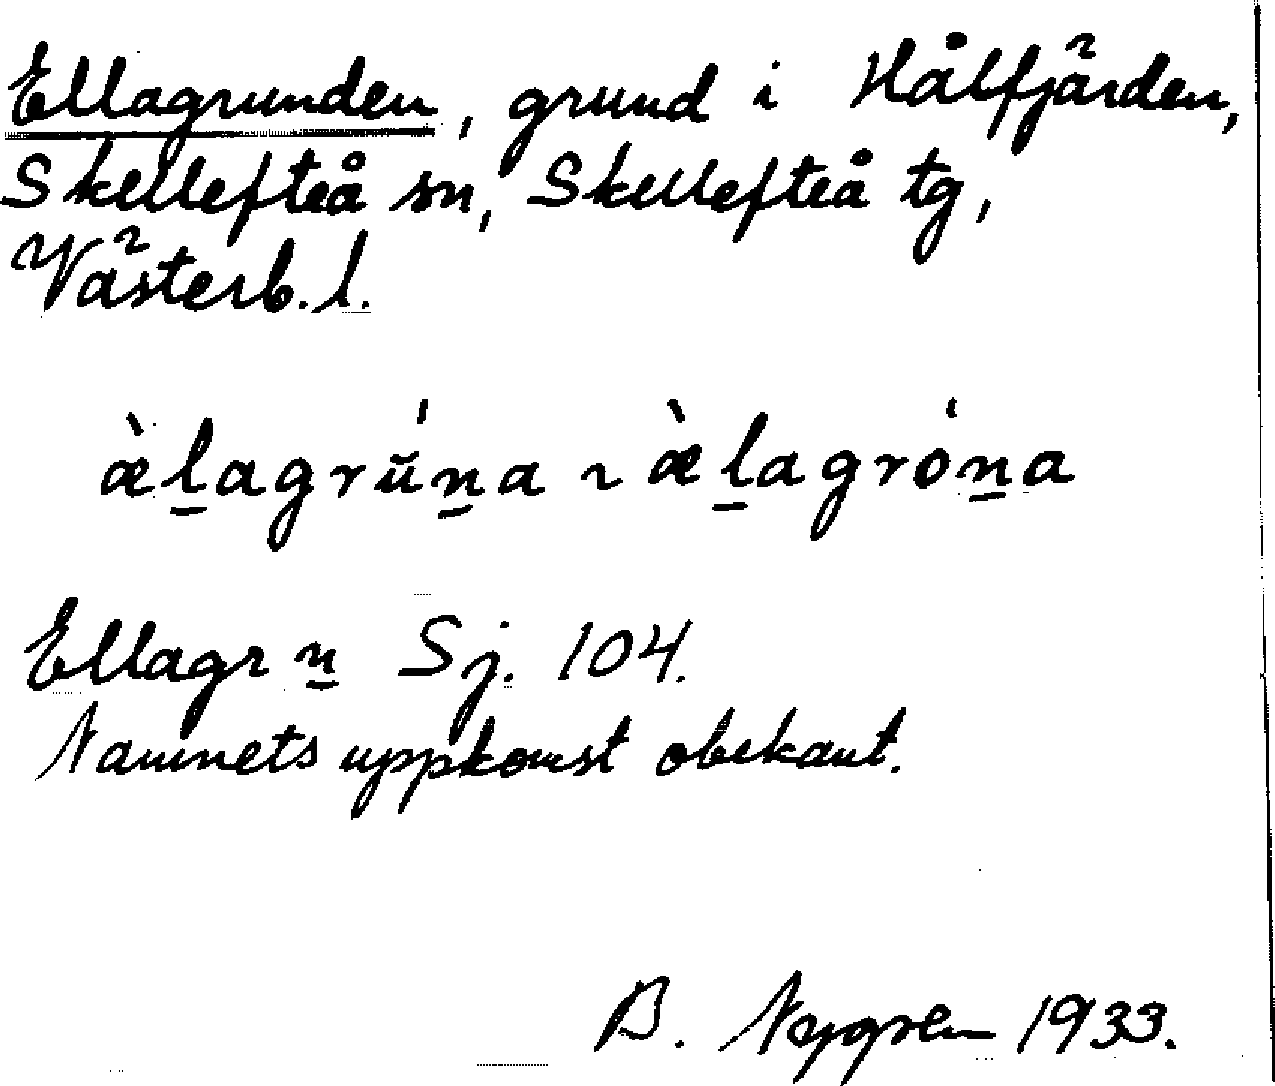 Ellagrunden, grund i Hålfjärden,
Skellefteå sn, Skellefteå tg,
Västerb. l.
æ̀l̠agrŭ́n̠a ~ æ̀l̠agrón̠a
Ellagr n̠ Sj. 104.
Namnets uppkomst obekant.
B. Nygren 1933.